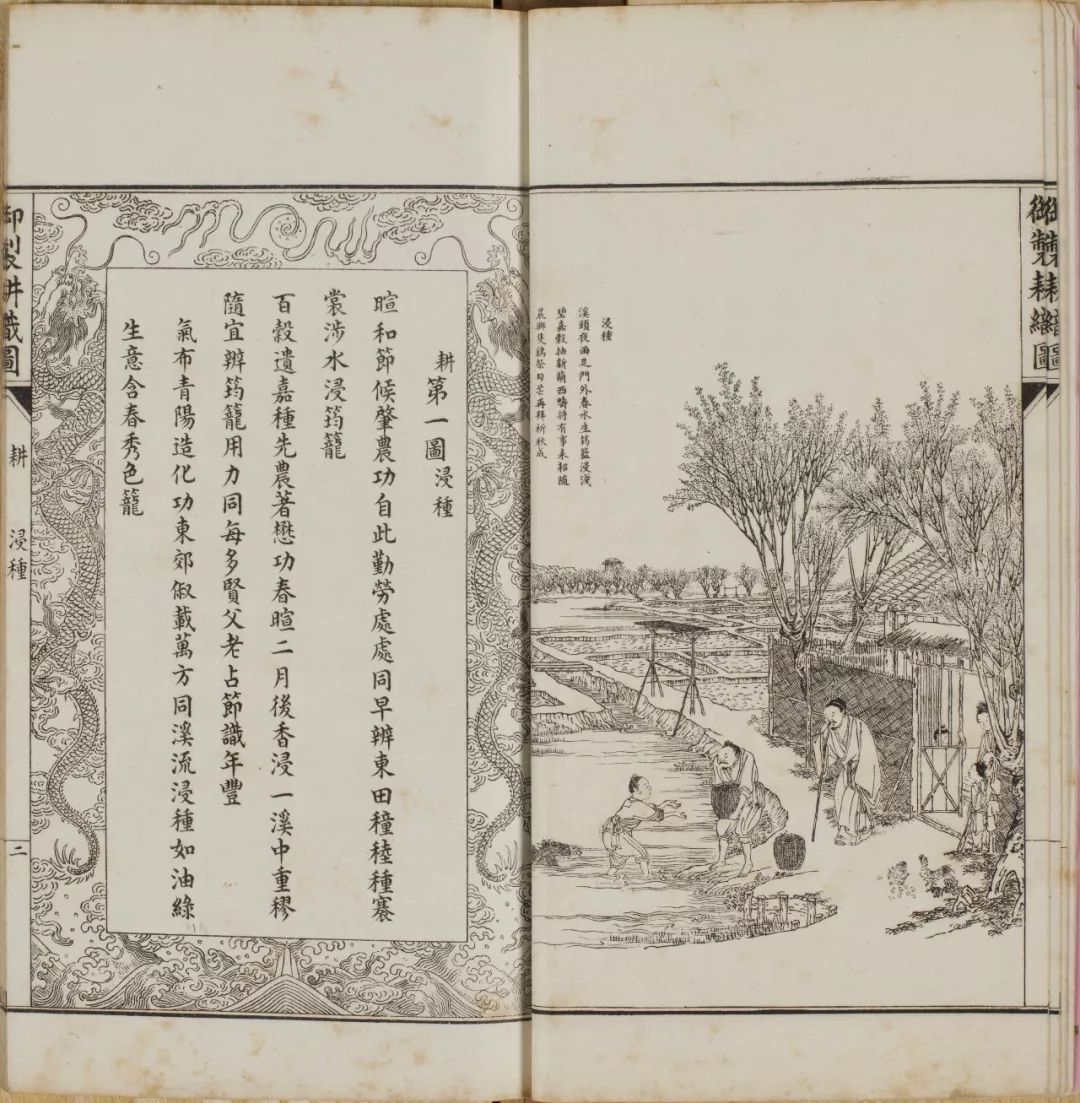 御製耕織圖
浸種
溪頭夜雨足門外春水生筠籃浸淺
碧嘉穀抽新萌西疇將有事耒耜隨
晨興隻鷄祭句芒再拜祈秋成
耕第一圖浸種
暄和節候肇農功自此勤勞處處同早辨東田穜稑種褰
裳涉水浸筠籠
百穀遺嘉種先農著懋功春暄二月後香浸一溪中重穋
隨宜辨筠籠用力同每多賢父老占節識年豐
氣布青陽造化功東郊俶載萬方同溪流浸種如油綠
生意含春秀色籠
御製耕織圖
耕
浸種
二